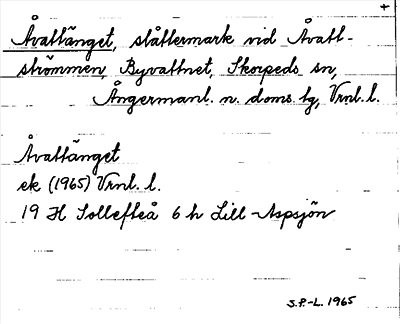 +
Åvattänget, slåttermark vid Åvatt-
strömmen, Byvattnet, Skorpeds sn,
Ångermanl. n. doms. tg, Vrnl. l.
Åvattänget
ek (1965) Vrnl. l.
19 H Sollefteå 6 h Lill-Aspsjön
S.P.-L. 1965